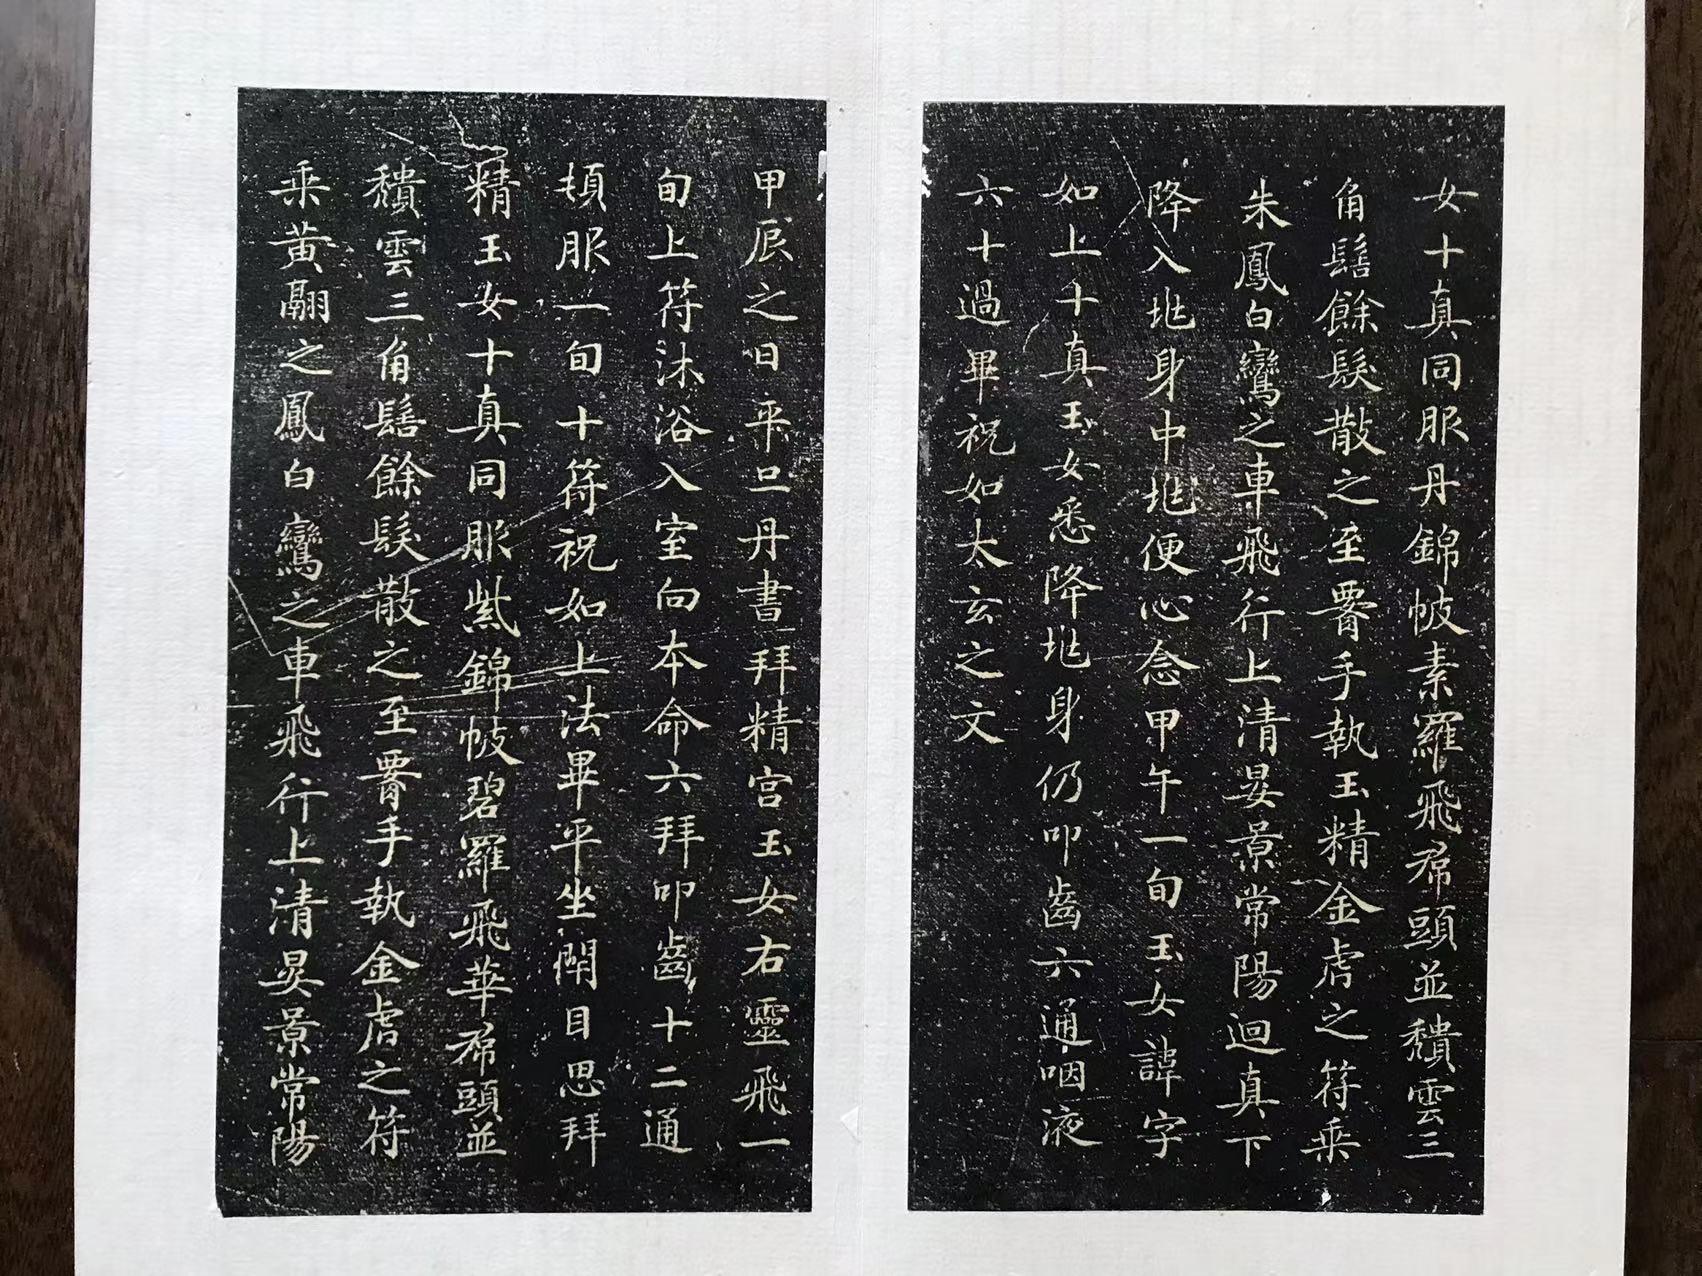 女十真同服丹錦帔素羅飛帬頭並穨雲三
角髻餘髮散之至䙴手執玉精金虎之符乗
朱鳳白鸞之車飛行上清晏景常陽迴真下
降入𡊨身中𡊨便心念甲午一旬玉女諱字
如上十真玉女悉降𡊨身仍叩齒六通咽液
六十過畢祝如太玄之文
甲辰之日平旦丹書拜精宫玉女右靈飛一
旬上符沐浴入室向本命六拜叩齒十二通
頓服一旬十符祝如上法畢平坐閇目思拜
精玉女十真同服紫錦帔碧羅飛華帬頭並
穨雲三角髻餘髮散之至䙴手執金虎之符
乗黄翮之鳳白鸞之車飛行上清晏景常陽